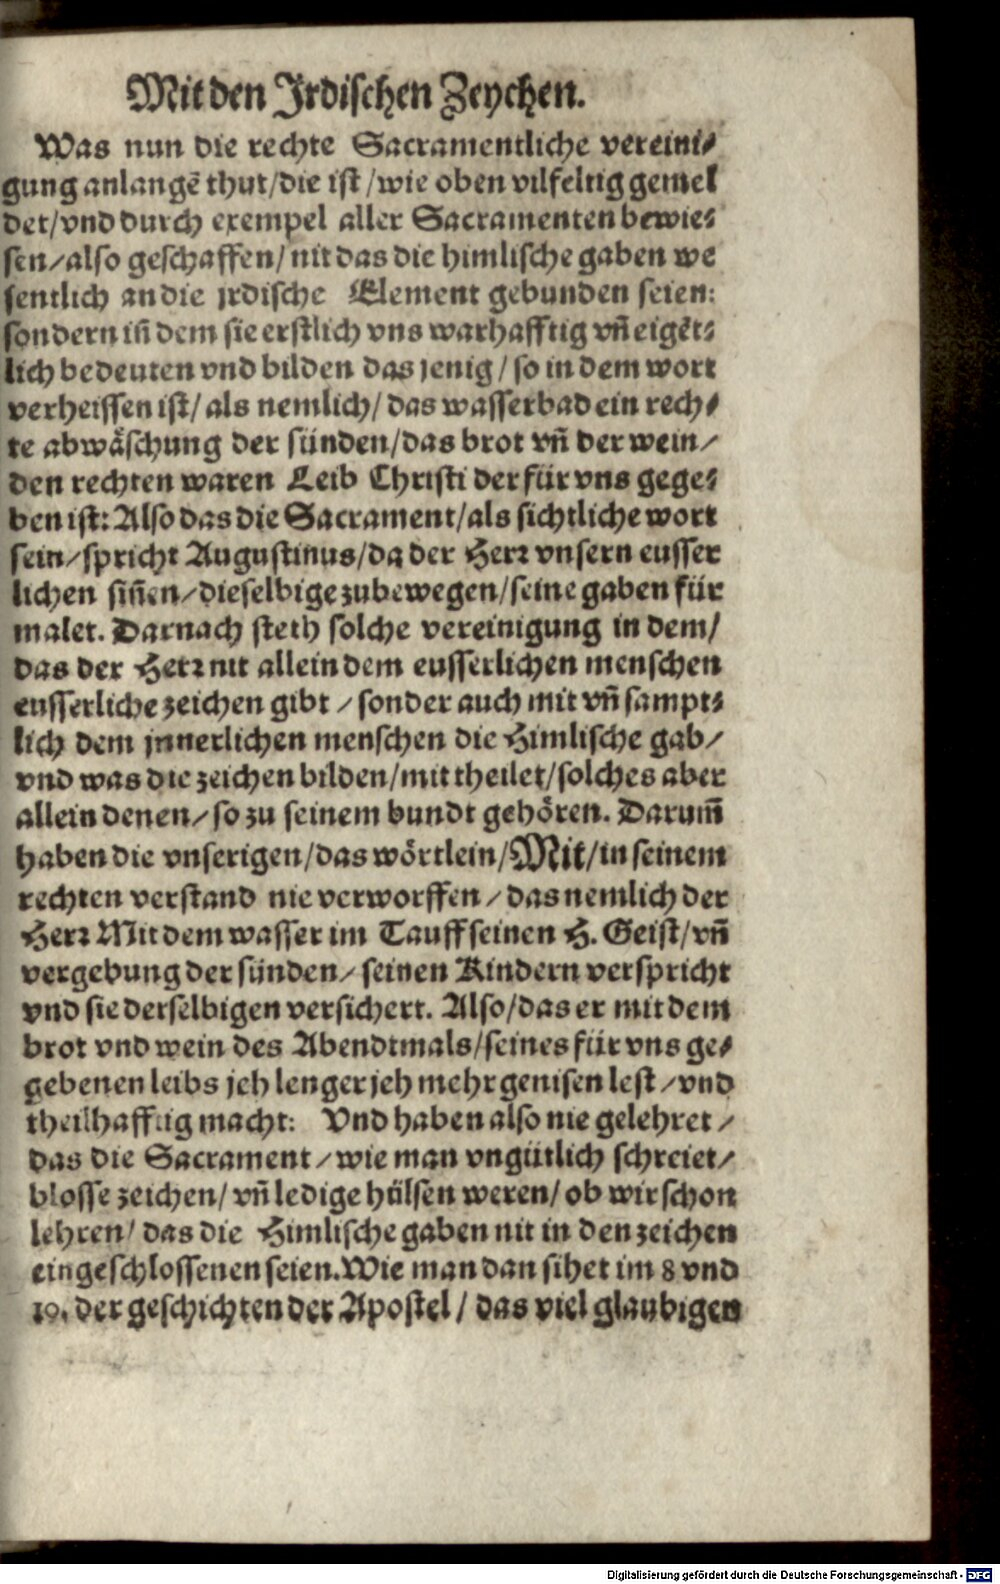 Mit den Jrdischen Zeychen.
Was nun die rechte Sacramentliche vereini-
gung anlangẽ thut/die ist/wie oben vilfeltig gemel
det/vnd durch exempel aller Sacramenten bewie-
sen/also geschaffen/nit das die himlische gaben we
sentlich an die jrdische Element gebunden seien:
sondern iñ dem sie erstlich vns warhafftig vñ eigẽt-
lich bedeuten vnd bilden das jenig/so in dem wort
verheissen ist/als nemlich/das wasserbad ein rech-
te abwäschung der sünden/das brot vñ der wein/
den rechten waren Leib Christi der für vns gege-
ben ist: Also das die Sacrament/als sichtliche wort
sein/spricht Augustinus/da der Herr vnsern eusser
lichen siñen/dieselbige zubewegen/seine gaben für
malet. Darnach steth solche vereinigung in dem/
das der Herr nit allein dem eusserlichen menschen
eusserliche zeichen gibt/sonder auch mit vñ sampt-
lich dem jnnerlichen menschen die Himlische gab/
vnd was die zeichen bilden/mit theilet/solches aber
allein denen/so zu seinem bundt gehören. Darum̃
haben die vnserigen/das wörtlein/Mit/in seinem
rechten verstand nie verworffen/das nemlich der
Herr Mit dem wasser im Tauff seinen H. Geist/vñ
vergebung der sünden/seinen Kindern verspricht
vnd sie derselbigen versichert. Also/das er mit dem
brot vnd wein des Abendtmals/seines für vns ge-
gebenen leibs jeh lenger jeh mehr genisen lest/vnd
theilhafftig macht: Vnd haben also nie gelehret/
das die Sacrament/wie man vngütlich schreiet/
blosse zeichen/vñ ledige hülsen weren/ob wir schon
lehren/das die Himlische gaben nit in den zeichen
eingeschlossenen seien.Wie man dan sihet im 8 vnd
10. der geschichten der Apostel/das viel glaubigen
Digitalisierung gefördert durch die Deutsche Forschungsgemeinschaft - DFG